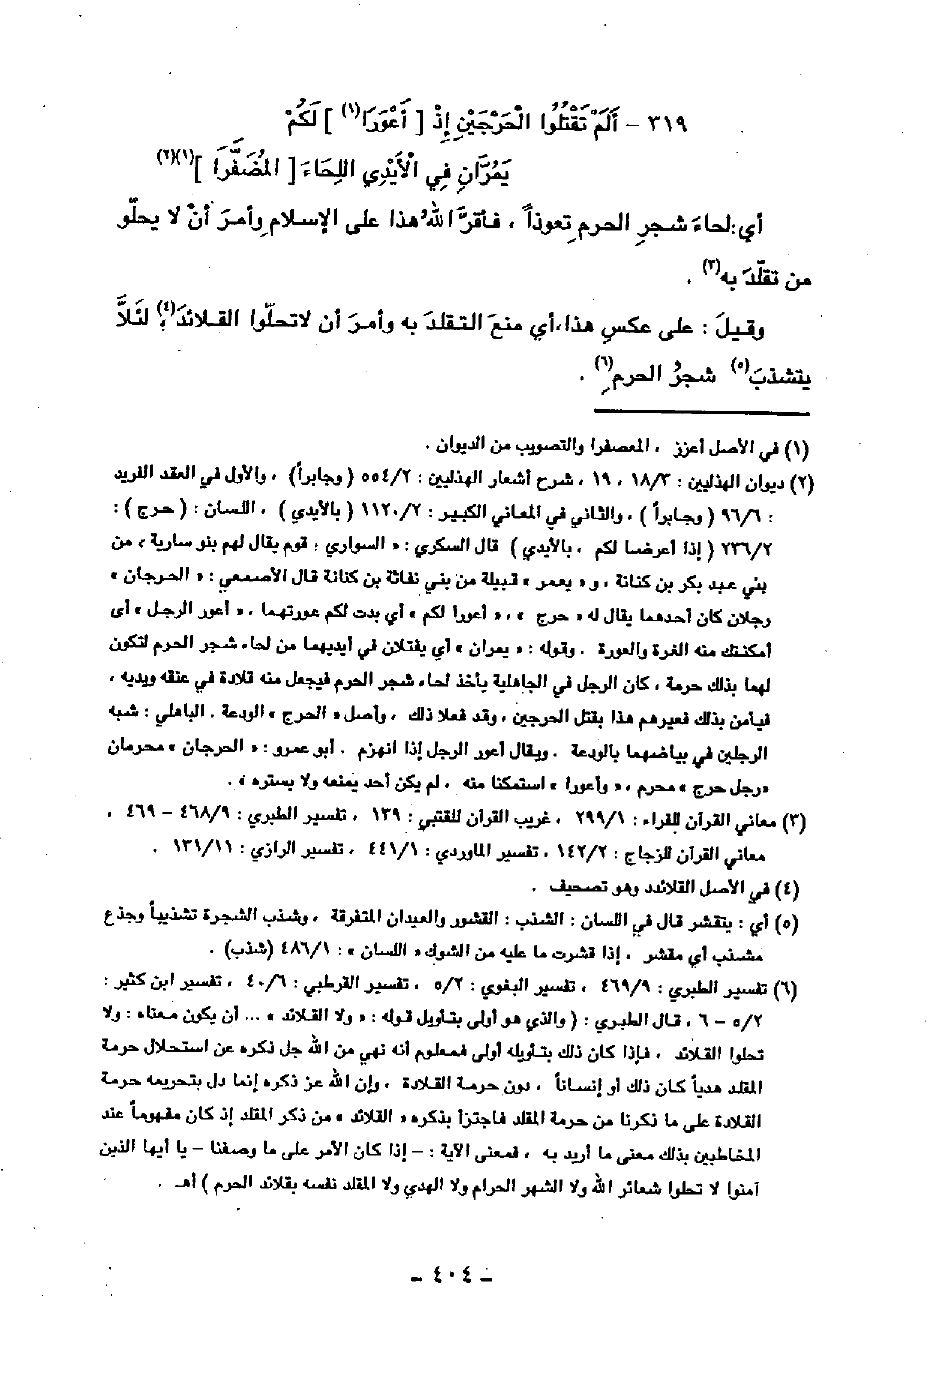 ٣١٩ – أَلَمْ تَقْتُلُوا الْحَرْجَيْنِ إِذْ [ أَعْوَرَا(١) ] لَكُمْ
يَمُرَّانِ فِي الْأَيْدِي اللِحَاءَ [ المُضَفَّرَا ](١)(٢)
أي: لحاءَ شجرِ الحرمِ تعوذاً ، فأقرَّ اللهُ هذا على الإسلامِ وأمرَ أنْ لا يحلّو
من تقلّدَ به(٣) .
وقيلَ : على عكسِ هذا، أي منعَ التقلدَ به وأمرَ أن لاتحلّوا القلائدَ(٤)؛ لئَلاَّ
يتشذبَ(٥) شجرُ الحرمِ(٦) .
(١) في الأصل أعزز ، المعصفرا والتصويب من الديوان .
(٢) ديوان الهذليين : ١٨/٣ ، ١٩ ، شرح أشعار الهذليين : ٥٥٤/٢ ( وجابراً) ، والأول في العقد الفريد
: ٩٦/٦ ( وجابراً ) ، والثاني في المعاني الكبير : ١١٢٠/٢ ( بالأيدي ) ، اللسان : ( حرج ) :
٢٣٦/٢ ( إذا أعرضا لكم ، بالأيدي ) قال السكري : « السواري : قوم يقال لهم بنو سارية ، من
بني عبد بكر بن كنانة ، و « يعمر » قبيلة من بني نفاثة بن كنانة قال الأصمعي : « الحرجان »
رجلان كان أحدهما يقال له « حرج » ، « أعورا لكم » أي بدت لكم عورتهما ، « أعور الرجل » أي
أمكنتك منه الغرة والعورة . وقوله : « يمران » أي يفتلان في أيديهما من لحاء شجر الحرم لتكون
لهما بذلك حرمة ، كان الرجل في الجاهلية يأخذ لحاء شجر الحرم فيجعل منه قلادة في عنقه ويديه ،
فيأمن بذلك فعيرهم هذا بقتل الحرجين ، وقد فعلا ذلك ، وأصل « الحرج » الودعة . الباهلي : شبه
الرجلين في بياضهما بالودعة . ويقال أعور الرجل إذا انهزم . أبو عمرو : « الحرجان » محرمان
«رجل حرج » محرم ، « وأعورا » استمكنا منه ، لم يكن أحد يمنعه ولا يستره » .
(٣) معاني القرآن للفراء : ٢٩٩/١ ، غريب القرآن للقتبي : ١٣٩ ، تفسير الطبري : ٤٦٨/٩ – ٤٦٩ ،
معاني القرآن للزجاج : ١٤٢/٢ ، تفسير الماوردي : ٤٤١/١ ، تفسير الرازي : ١٣١/١١ .
(٤) في الأصل القلائدد وهو تصحيف .
(٥) أي : يتقشر قال في اللسان : الشذب : القشور والعيدان المتفرقة ، وشذب الشجرة تشذيباً وجذع
مشذب أي مقشر ، إذا قشرت ما عليه من الشوك « اللسان » : ٤٨٦/١ (شذب) .
(٦) تفسير الطبري : ٤٦٩/٩ ، تفسير البغوي : ٥/٢ ، تفسير القرطبي : ٤٠/٦ ، تفسير ابن كثير :
٥/٢ – ٦ ، قال الطبري : ( والذي هو أولى بتأويل قوله : « ولا القلائد » ... أن يكون معناه : ولا
تحلوا القلائد ، فإذا كان ذلك بتأويله أولى فمعلوم أنه نهي من الله جل ذكره عن استحلال حرمة
المقلد هدياً كان ذلك أو إنساناً ، دون حرمة القلادة ، وإن الله عز ذكره إنما دل بتحريمه حرمة
القلادة على ما ذكرنا من حرمة المقلد فاجتزأ بذكره « القلائد » من ذكر المقلد إذ كان مفهوماً عند
المخاطبين بذلك معنى ما أريد به ، فمعنى الآية : – إذا كان الأمر على ما وصفنا – يا أيها الذين
آمنوا لا تحلوا شعائر الله ولا الشهر الحرام ولا الهدي ولا المقلد نفسه بقلائد الحرم ) أهـ .
– ٤٠٤ –